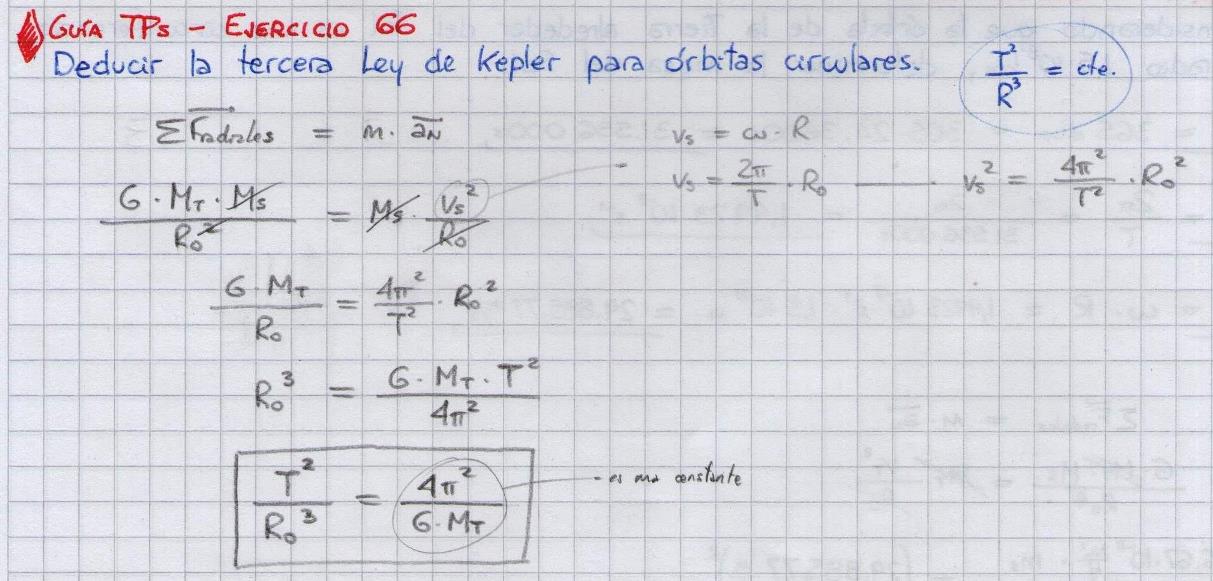 GUÍA TPs - EJERCICIO 66
Deducir la tercera Ley de Kepler para órbitas circulares. T²/R³ = cte.
ΣFradiales = m · aN
vs = ω · R
vs = 2π/T · Ro vs² = 4π²/T² · Ro²
G · MT · Ms / Ro² = Ms · Vs²/Ro
G · MT / Ro = 4π²/T² · Ro²
Ro³ = G · MT · T² / 4π²
T²/Ro³ = 4π²/G · MT - es una constante